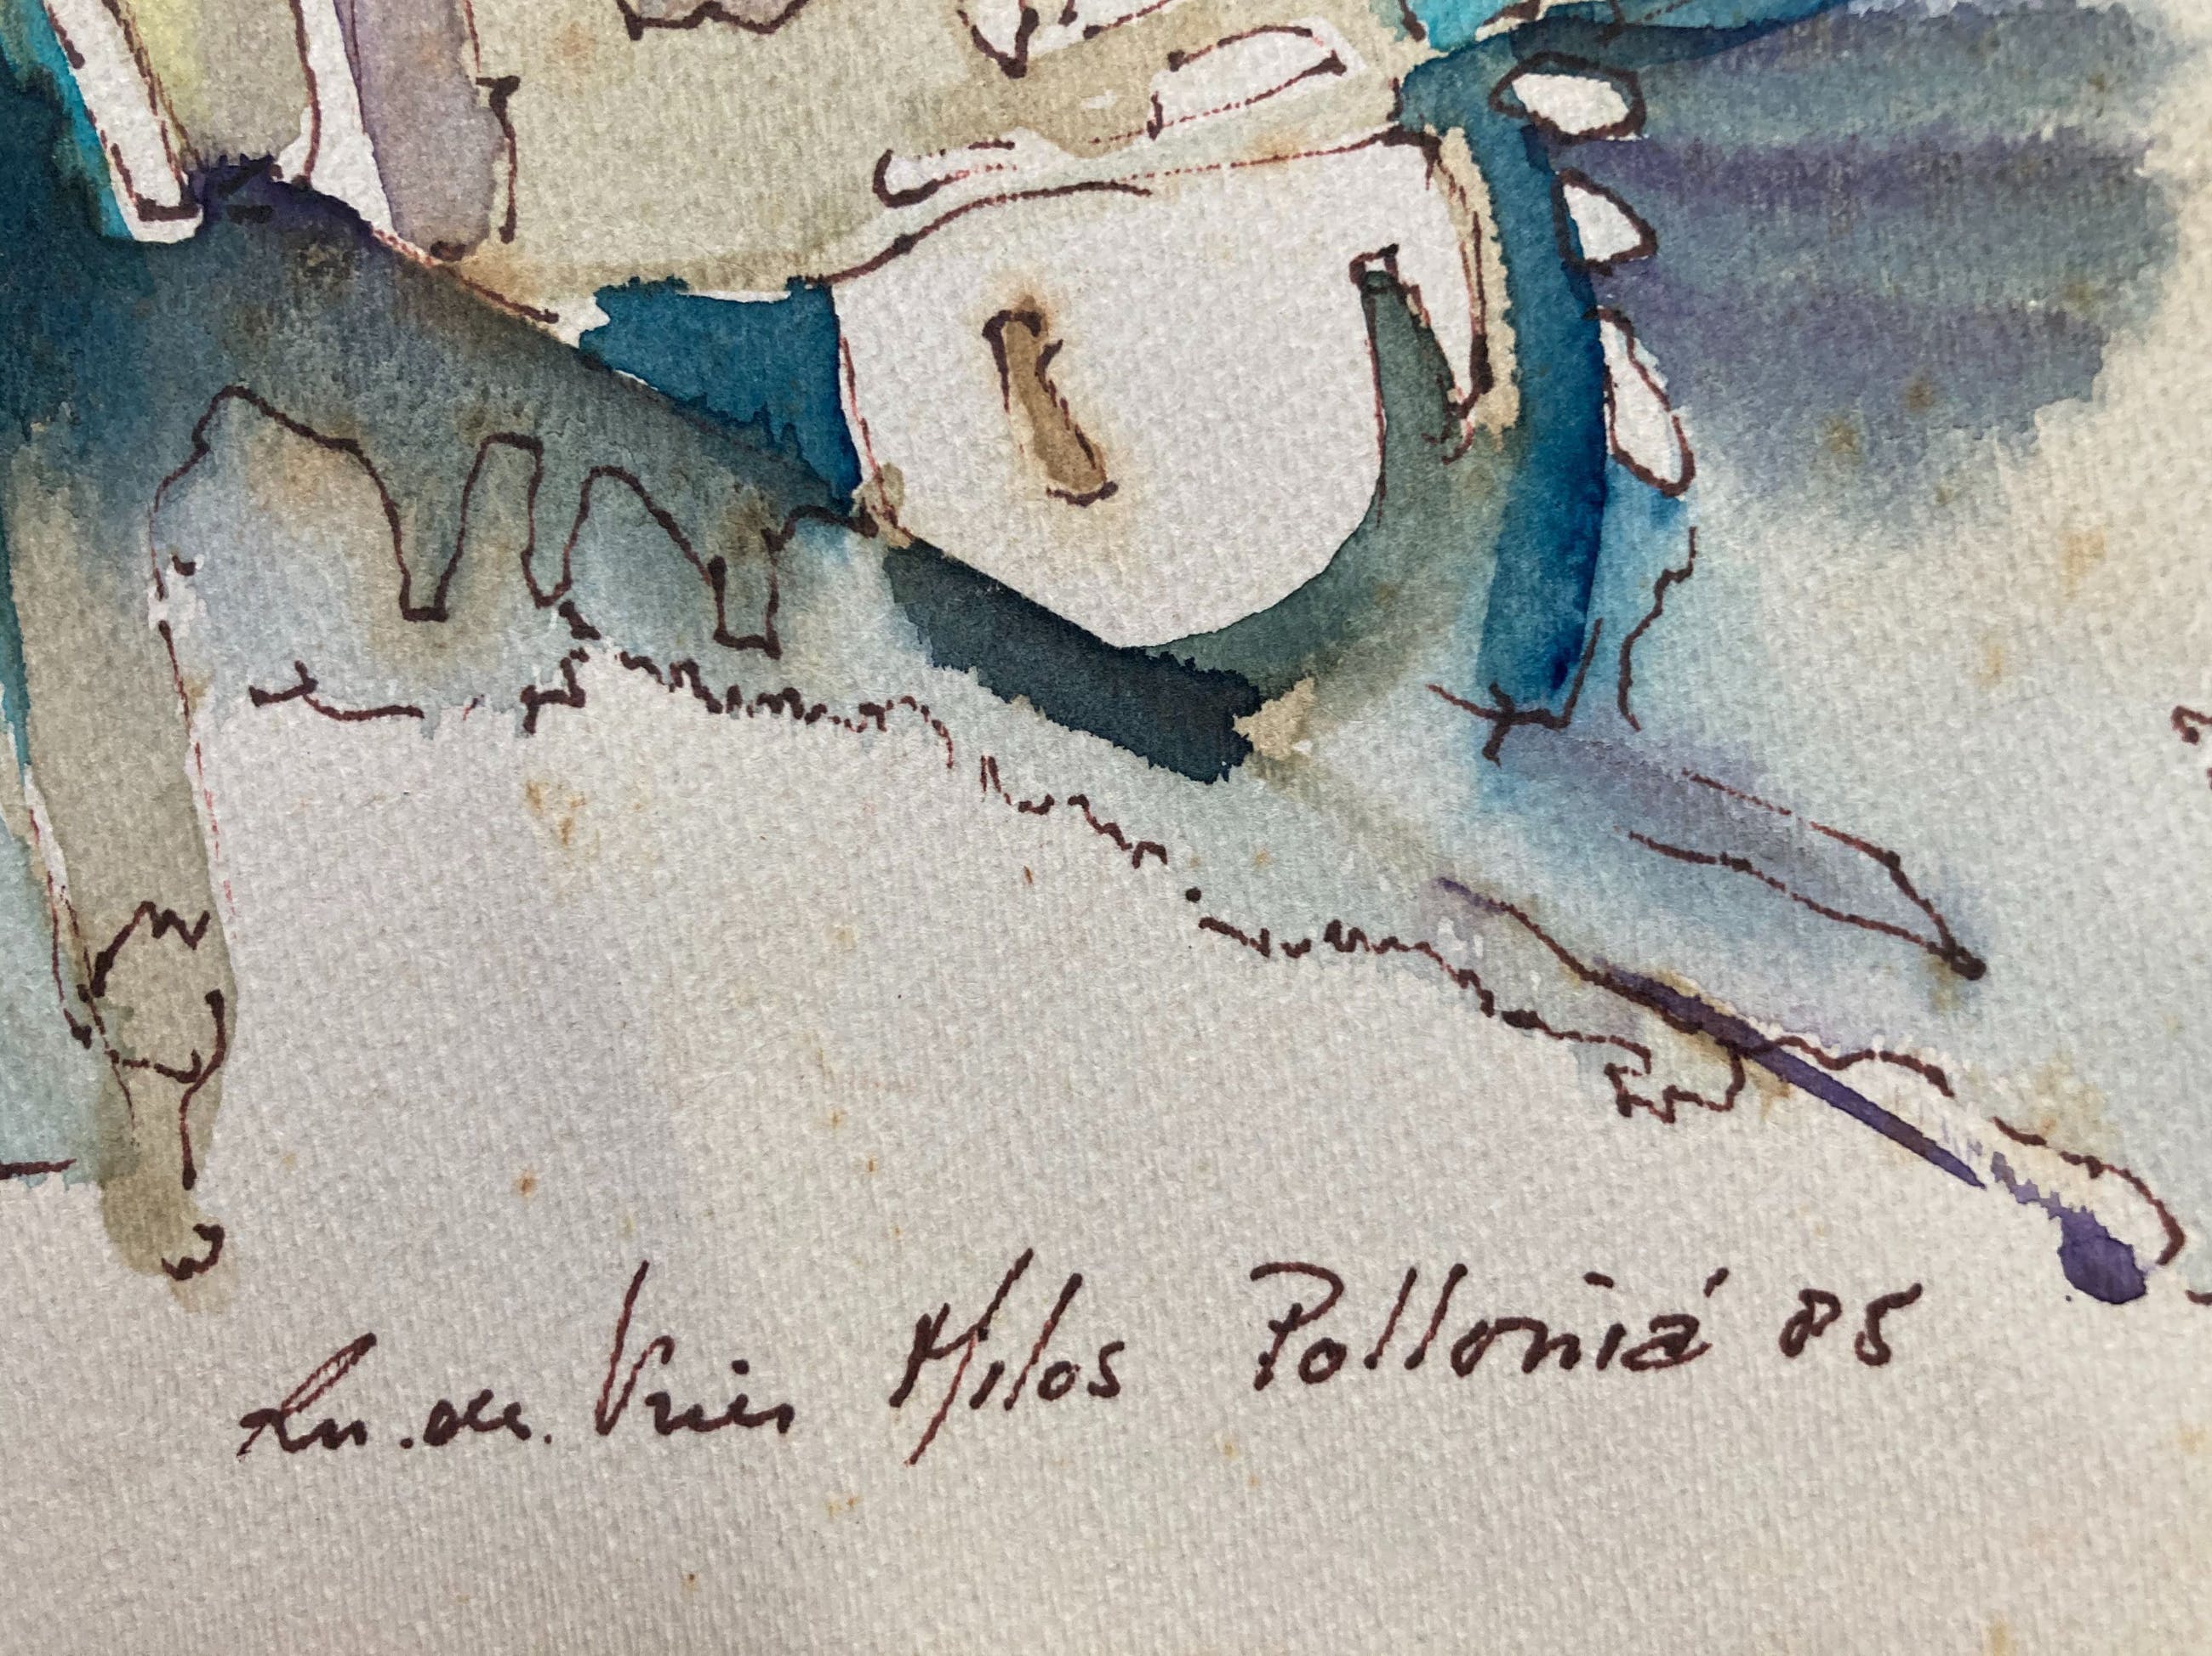 de. Vries Milos Pollonia' 85